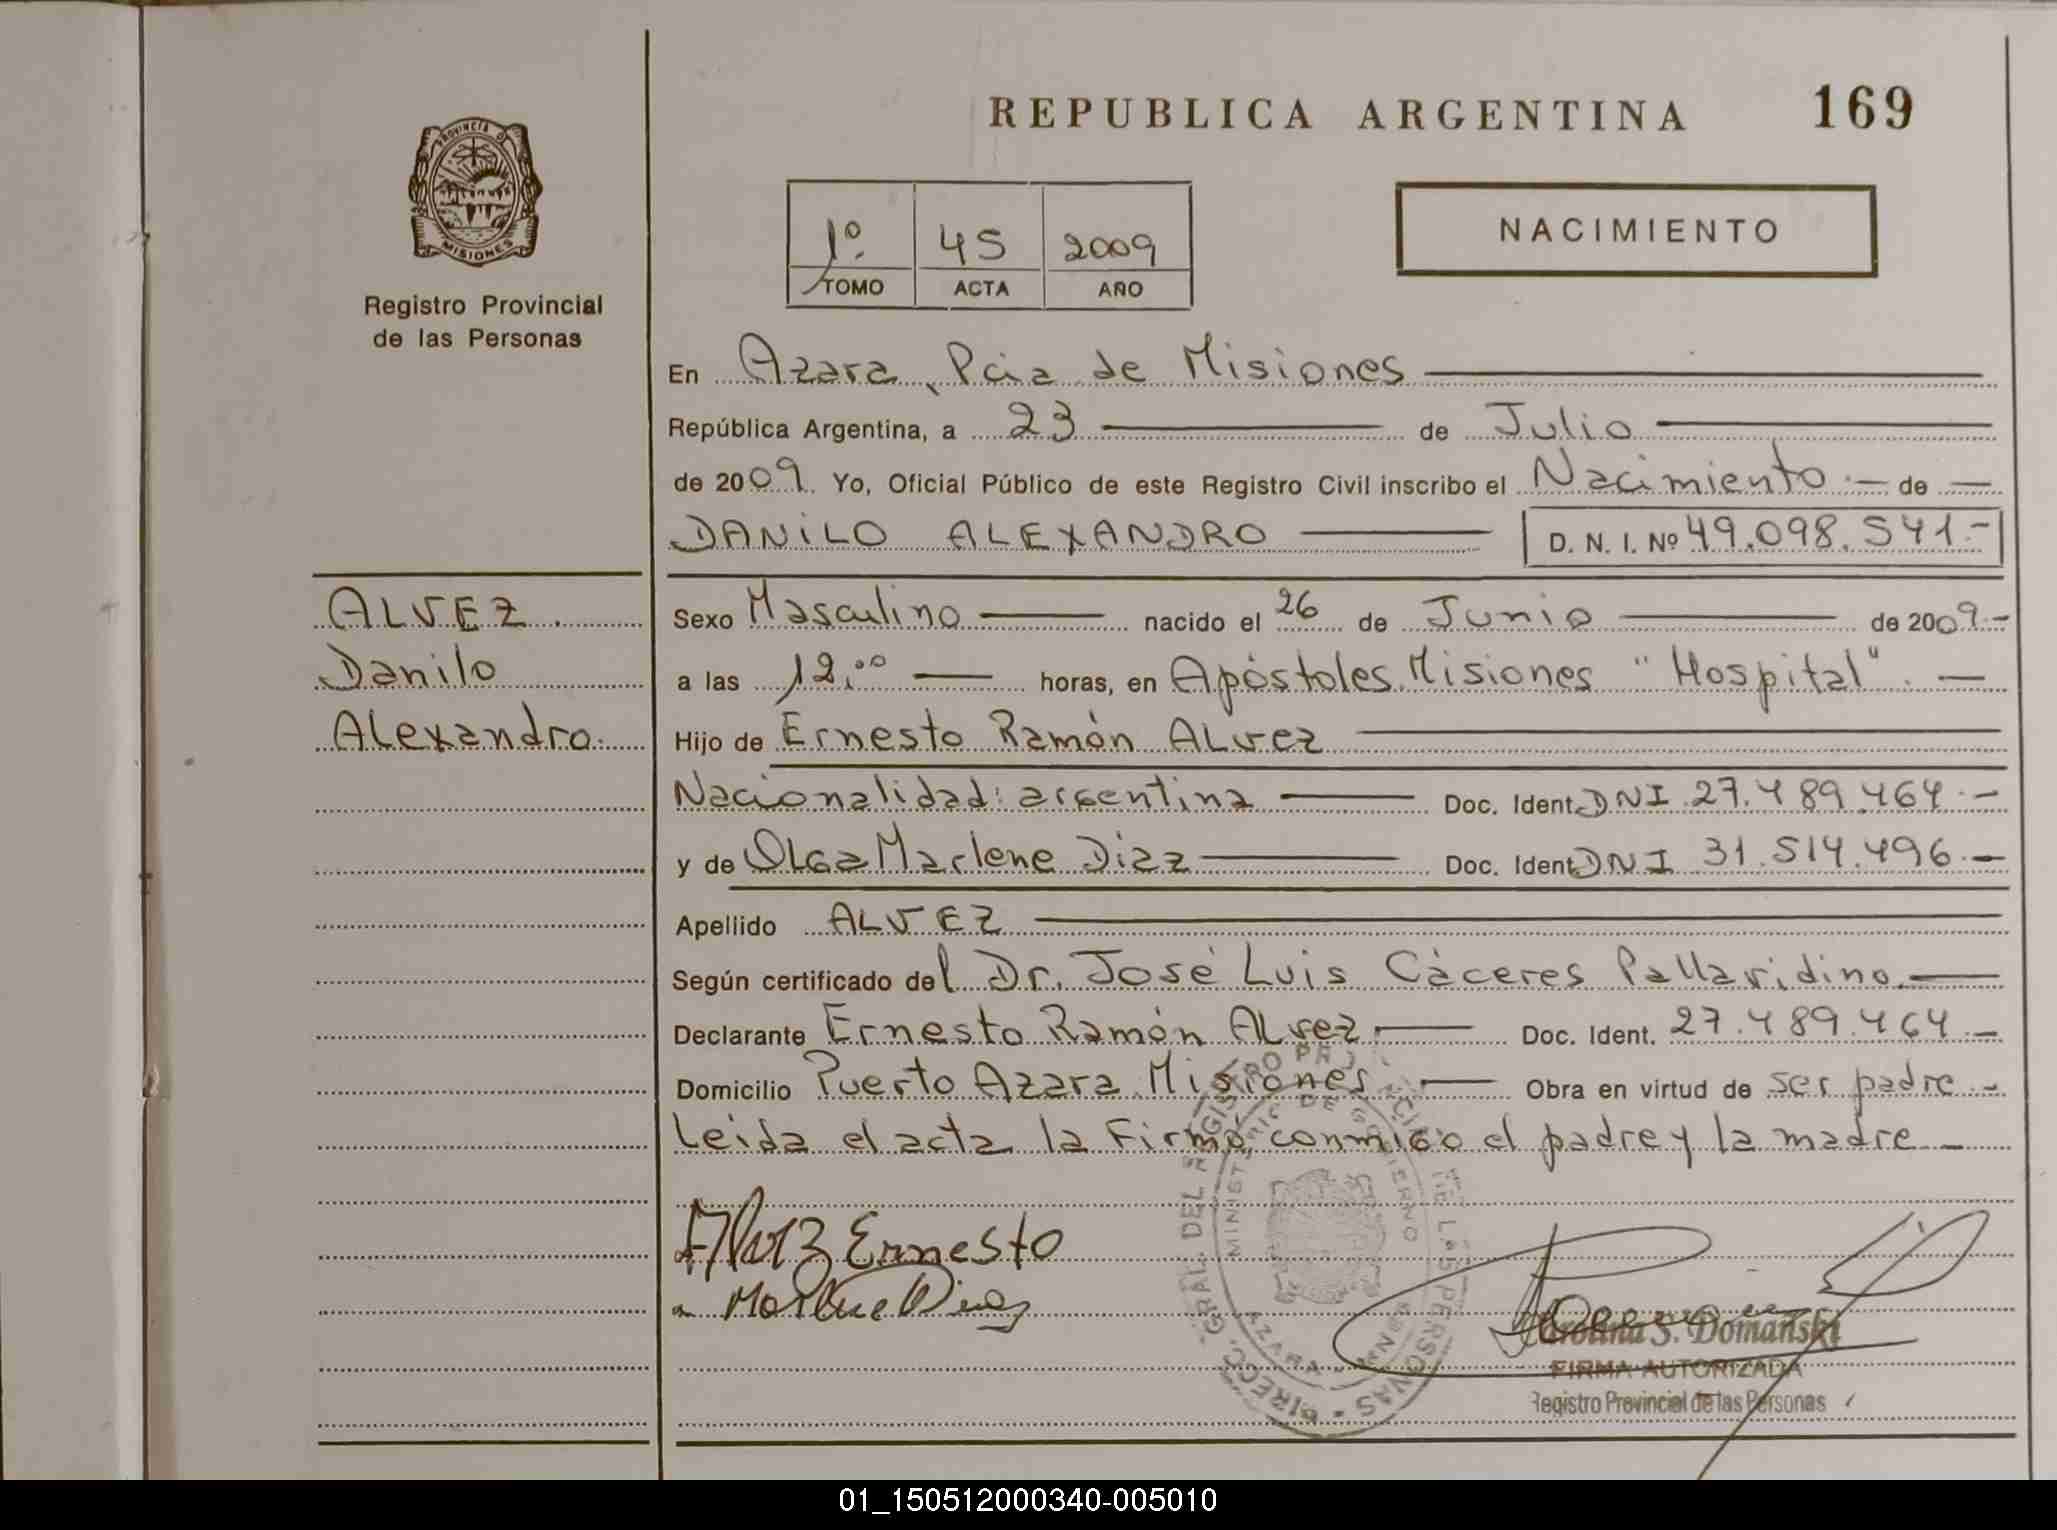 REPUBLICA ARGENTINA 169
PROVINCIA DE
MISIONES
Registro Provincial
de las Personas
1º 45 2009
TOMO ACTA AÑO
NACIMIENTO
En Azara, Pcia de Misiones
República Argentina, a 23 de Julio
de 2009. Yo, Oficial Público de este Registro Civil inscribo el Nacimiento.- de
DANILO ALEXANDRO D. N. I. Nº 49.098.541.-
ALVEZ
Danilo
Alexandro.
Sexo Masculino nacido el 26 de Junio de 2009.-
a las 12:00 horas, en Apóstoles Misiones "Hospital".
Hijo de Ernesto Ramón ALvez
Nacionalidad: argentina Doc. Ident. DNI 27.489.464.-
y de OLGa Marlene Diaz Doc. Ident. DNI 31.514.496.-
Apellido ALVEZ
Según certificado del Dr. José Luis Cáceres Pallavidino.
Declarante Ernesto Ramón ALvez Doc. Ident. 27.489.464.-
Domicilio Puerto Azara Misiones Obra en virtud de ser padre.-
Leida el acta la Firma conmigo el padre y la madre
Alvez Ernesto
Marlene Diaz
DIRECC. GRAL. DEL REGISTRO PROVINCIAL DE LAS PERSONAS
MINISTERIO DE GOBIERNO
AZARA
Carolina S. Domanski
FIRMA AUTORIZADA
Registro Provincial de las Personas
01_150512000340-005010